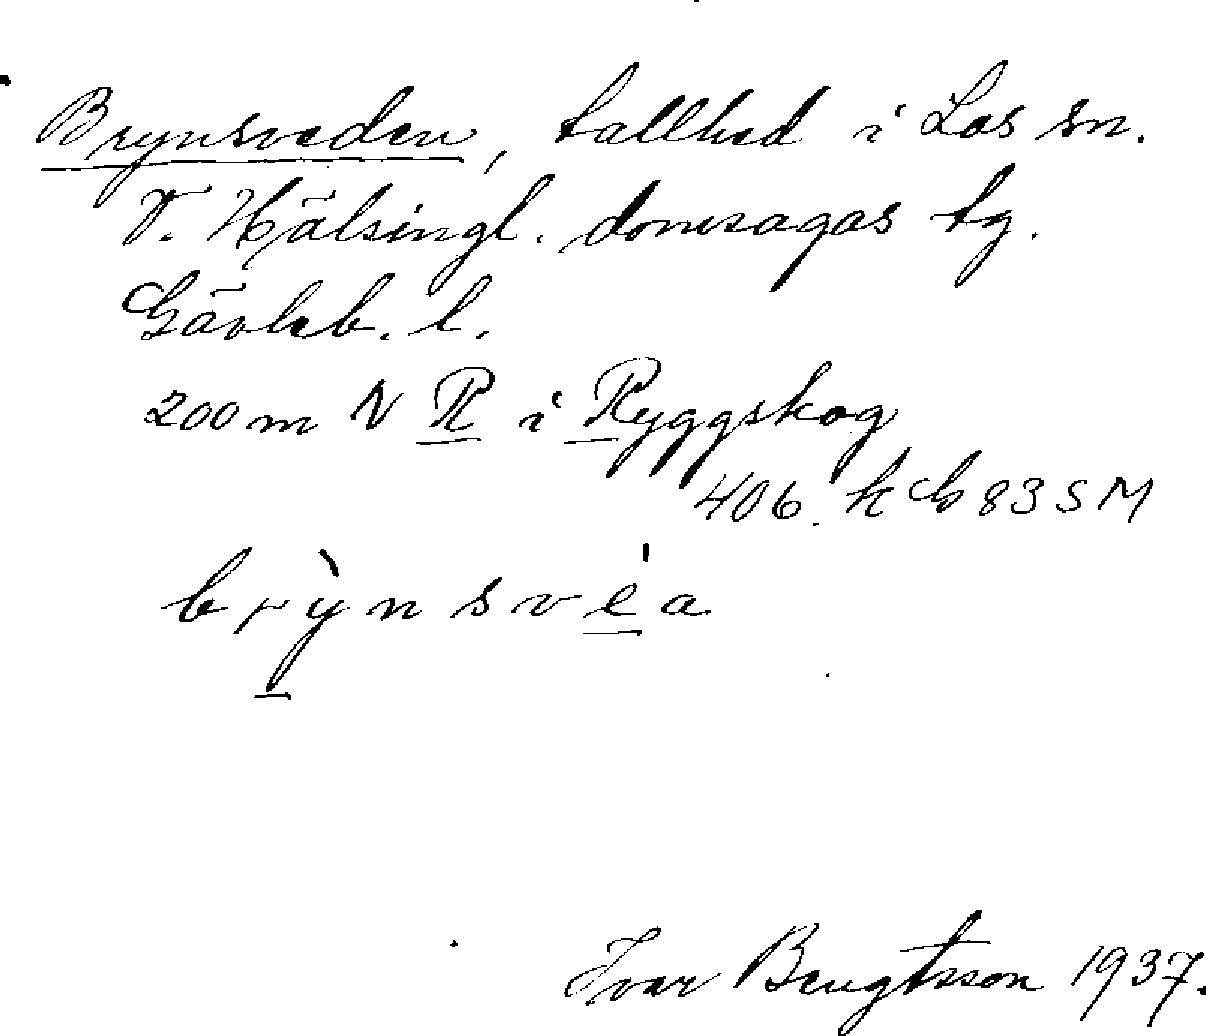 Brynsveden, tallhed i Los sn.
V. Hälsingl. domsagas tg.
Gävleb. l.
200 m N R i Ryggskog
406. k cb 83 S M
brỳnsvéa
Ivar Bengtsson 1937.